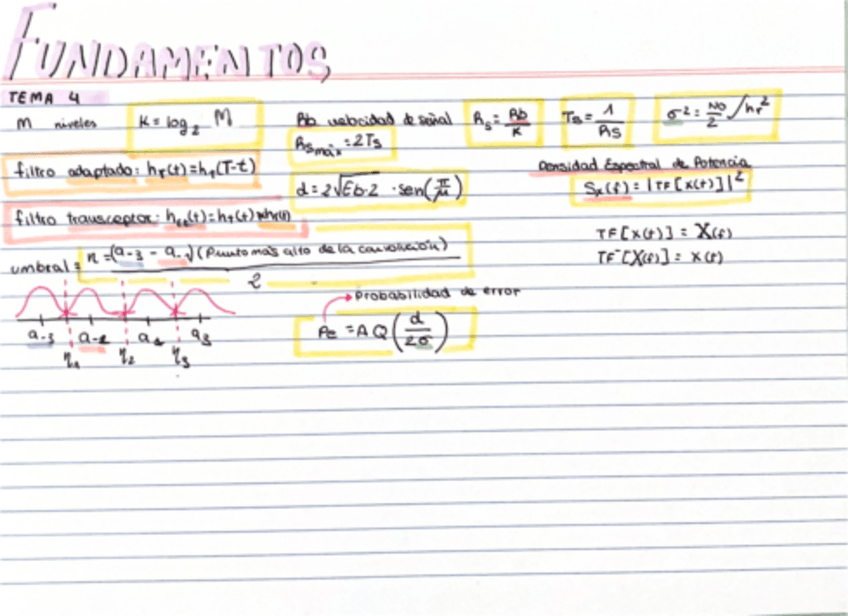 FUNDAMENTOS
TEMA 4
M niveles
K = log₂ M
Rb velocidad de señal
Rs = Rb/K
Ts = 1/Rs
σ² = No/2 / hr²
Rsmáx = 2Ts
filtro adaptado: hr(t)=ht(T-t)
d = 2√Eb·2 · sen(π/M)
Densidad Espectral de Potencia
Sx(f) = |TF[x(t)]|²
filtro transceptor: htr(t)=ht(t)*hr(t)
TF[x(t)] = X(f)
TF⁻[X(f)] = x(t)
umbral = n = (a-3 - a-1)(Punto más alto de la convolución) / 2
Probabilidad de error
Pe = A Q(d/2σ)
a-3 a-1 a1 a3
η1 η2 η3